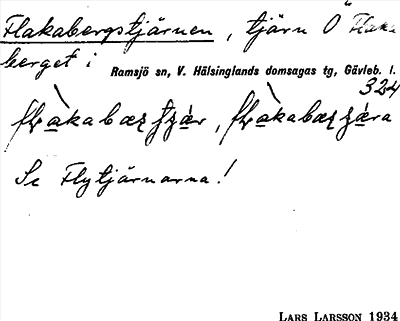 Flakabergstjärnen, tjärn O Flaka
berget i Ramsjö sn, V. Hälsinglands domsagas tg, Gävleb. l.
324
Se Flytjärnarna!
LARS LARSSON 1934